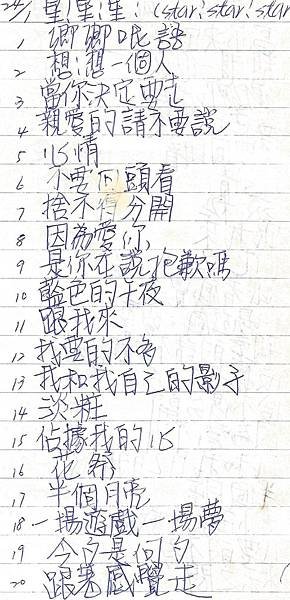 24/, 星!星!星! (star!star!star
1 卿卿呢語
2 想想一個人
3 當你決定要走
4 親愛的請不要說
5 心情
6 不要回頭看
7 捨不得分開
8 因為愛你
9 是你在說抱歉嗎
10 藍色的午夜
11 跟我來
12 我要的不多
13 我和我自己的影子
14 淡粧
15 佔據我的心
16 花祭
17 半個月亮
18 一場遊戲一場夢
19 今夕是何夕
20 跟著感覺走